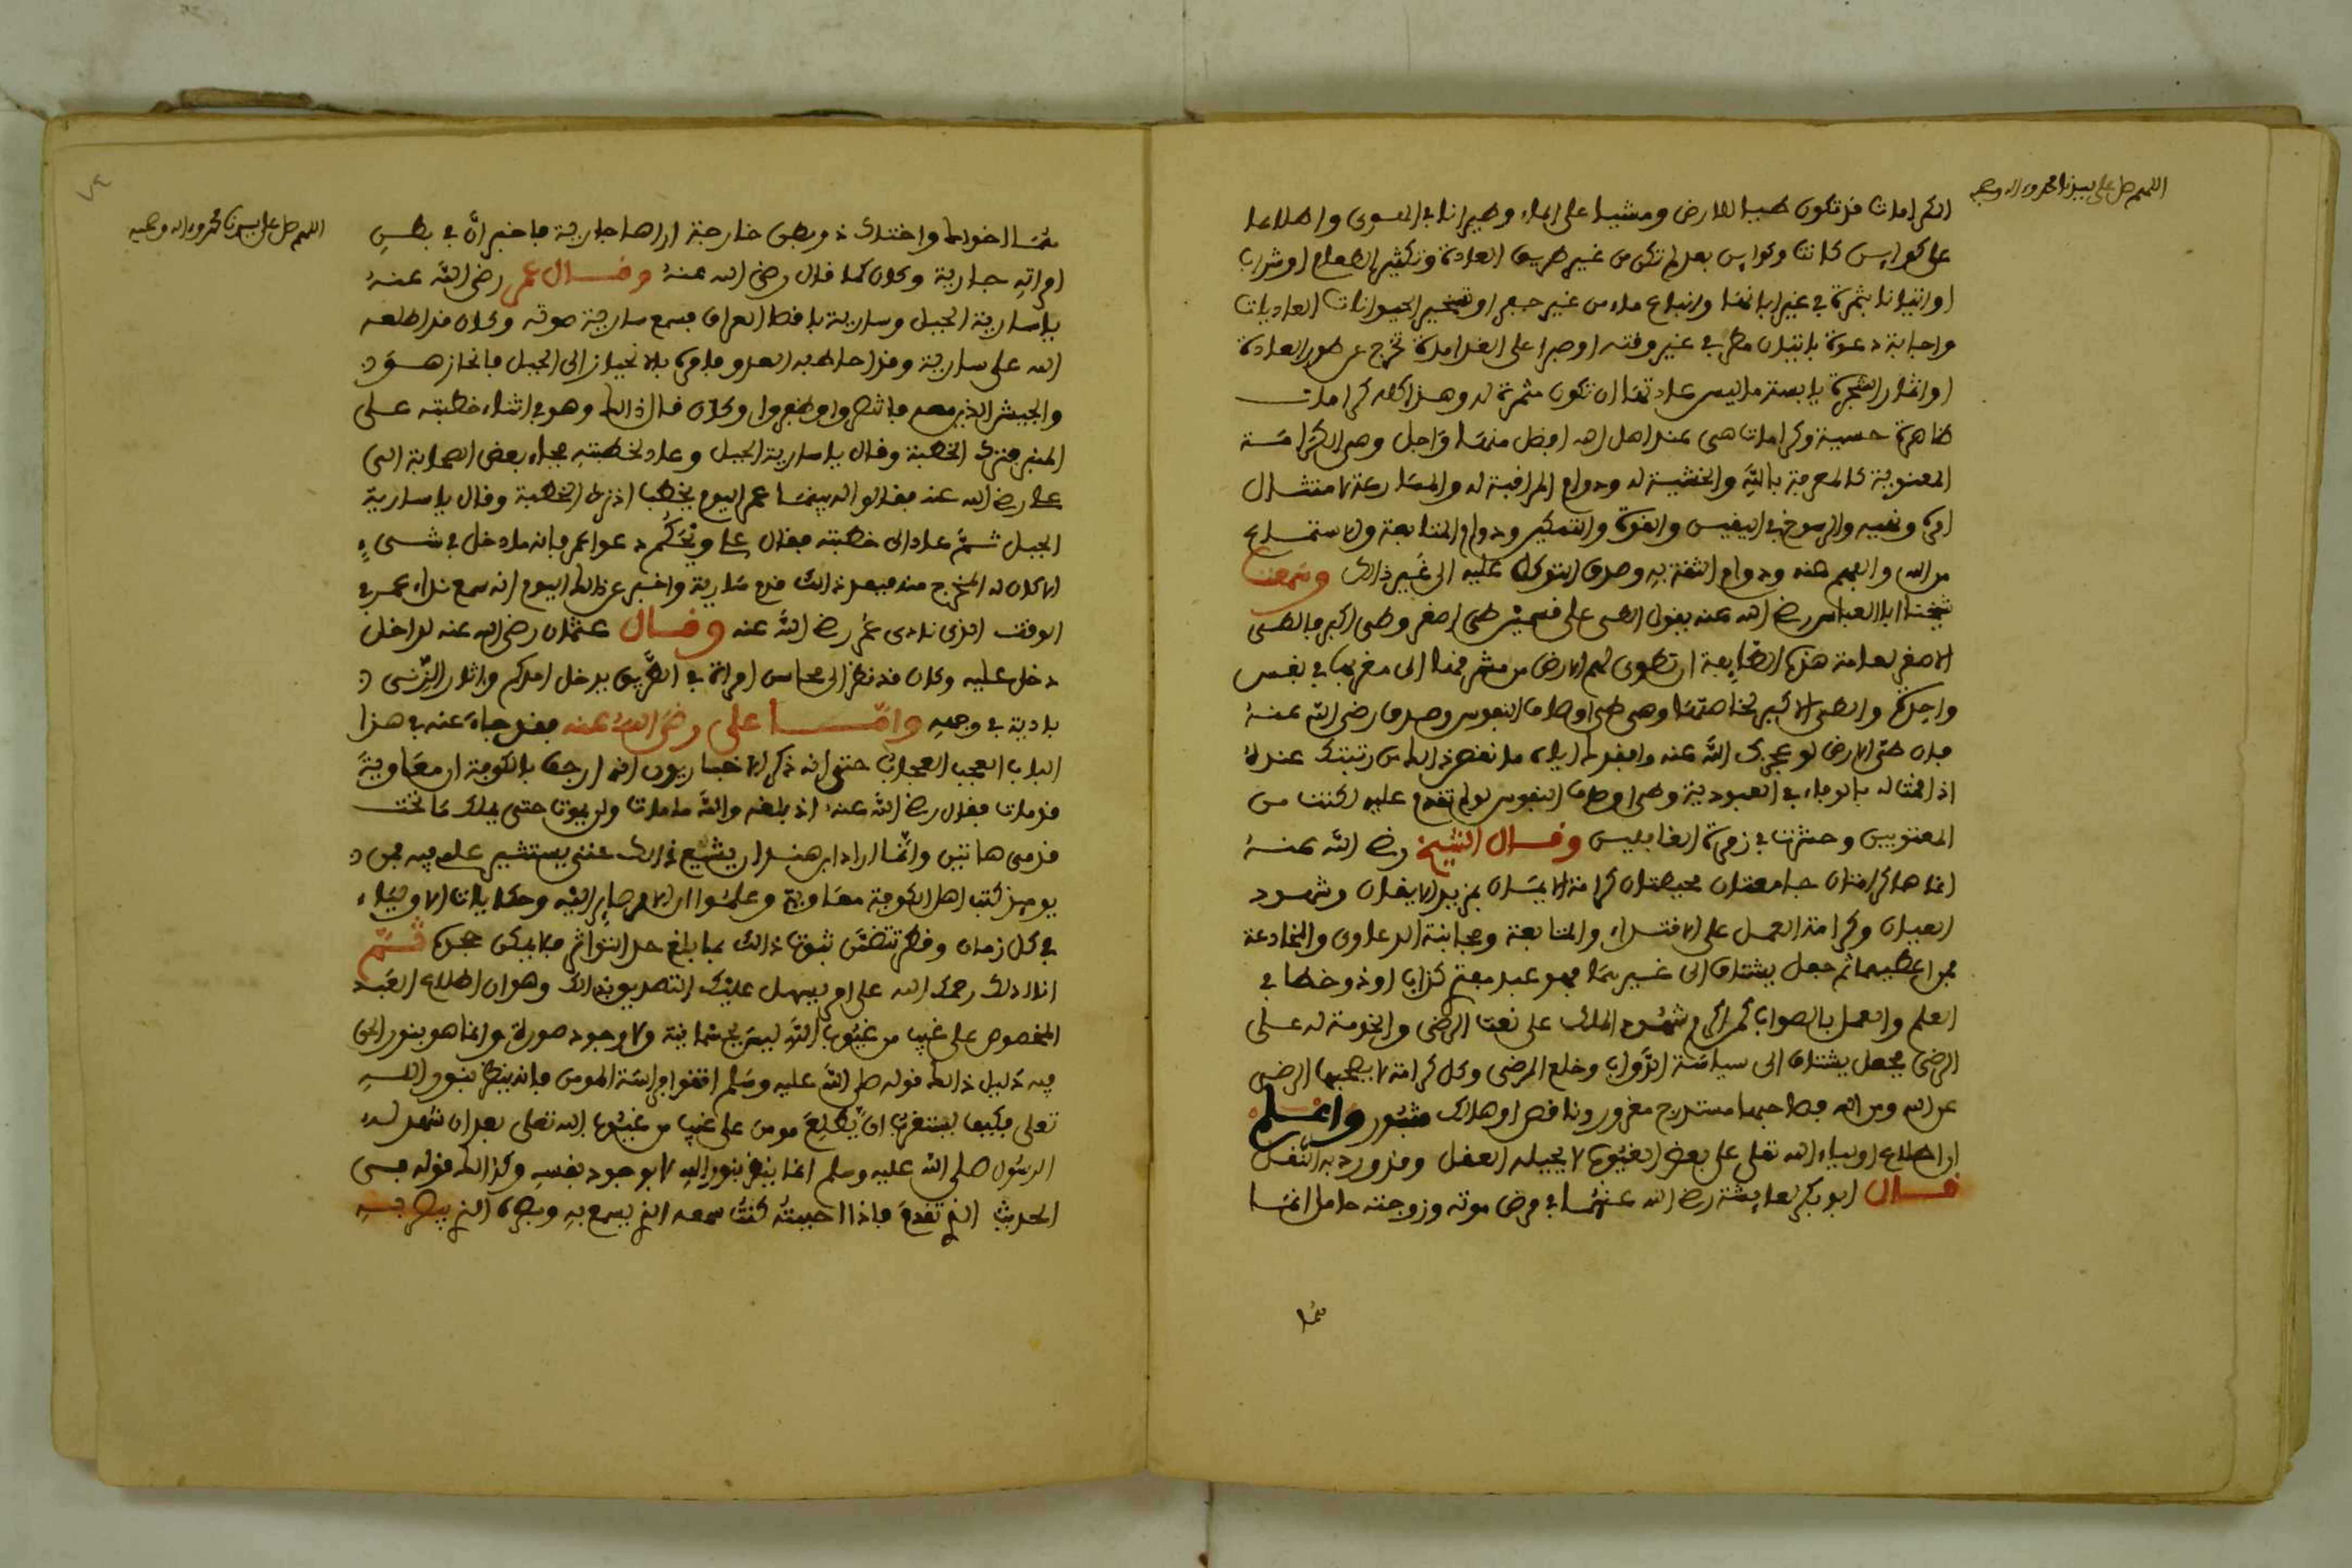 اللهم صل على سيدنا محمد وءاله وصحبه
الكرامات قد تكون طيا للارض ومشيا على الماء وطيرانا في الهوى واطلاعا
على كواين كانت وكواين بعد لم تكن من غير طريق العادة وتكثير الطعام او شراب
او اتيانا بثمرة في غير ابانها وانباع ماء من غير حفر او تسخير الحيوانات العاديات
واجابة دعوة باتيان مطر في غير وقته او صبرا على الغذا مدة تخرج عن طور العادة
او اثمار الشجرة يابسة ما ليس عادتها ان تكون مثمرة له وهذا كله كرامات
ظاهرة حسية وكرامات هي عند اهل الله افضل منها واجل وهي الكرامة
المعنوية كالمعرفة بالله والخشية له ودوام المراقبة له والمسارعة لامتثال
امره ونهيه والرسوخ في اليقين والقوة والتمكين ودوام المتابعة والاستماع
من الله والفهم عنه ودوام الثقة به وصدق التوكل عليه الى غير ذالك وسمعت
شيخنا ابا العباس رضي الله عنه يقول الطي على قسمين طي اصغر وطي اكبر فالطي
الاصغر لعامة هذه الطايفة ان تطوى لهم الارض من مشرقها الى مغربها في نفس
واحد والطي الاكبر لخاصتها وهي طي اوصاف النفوس وصدق رضي الله عنه
فان طي الارض لو عجزك الله عنه وافقدك اياه ما نقص ذالك من رتبتك عنده
اذا قمت له بالوفاء في العبودية وطي اوصاف النفوس لو لم تقدم عليه لكنت من
المغبونين وحشرت في زمرة الغافلين وقال الشيخ رضي الله عنه
انما هما كرامتان جامعتان محيطتان كرامة الايمان بمزيد الايقان وشهود
العيان وكرامة العمل على الاقتداء والمتابعة ومجانبة الدعاوى والمخادعة
فمن اعطيهما ثم جعل يشتاق الى غيرهما فهو عبد مفتر كذاب او ذو خطا في
العلم والعمل بالصواب كمن اكرم بشهود الملك على نعت الرضى والخدمة له على
الرضى فجعل يشتاق الى سياسة الدواب وخلع المرضى وكل كرامة لا يصحبها الرضى
عن الله ومن الله فصاحبها مستدرج مغرور وناقص او هالك مثبور واعلم
ان اطلاع اولياء الله تعلى على بعض الغيوب لا يحيله العقل وقد ورد به النقل
قال ابو بكر لعايشة رضي الله عنهما في مرض موته وزوجته حامل انما
هما
اللهم صل على سيدنا محمد وءاله وصحبه
هما اخواك واختاك ذو بطن خارجة اراها جارية فاخبر ان في بطن
امراته جارية وكان كما قال رضي الله عنه وقال عمر رضي الله عنه
يا سارية الجبل وسارية باقصا العراق فسمع سارية صوته وكان قد اطلعه
الله على سارية وقد احاط به العدو فامره بالانحياز الى الجبل فانحاز هو و
والجيش الذي معه فانتصروا وظفروا وكان قال ذالك وهو في اثناء خطبته على
المنبر فترك الخطبة وقال يا سارية الجبل وعاد لخطبته فجاء بعض الصحابة الى
علي رضي الله عنه فقالوا له بينما عمر اليوم يخطب اذ ترك الخطبة وقال يا سارية
الجبل ثم عاد الى خطبته فقال علي ويحكم دعوا عمر فانه ما دخل في شيء
الا كان له المخرج منه فبعد ذالك قدم سارية واخبر عن ذالك اليوم انه سمع نداء عمر في
الوقت الذي نادى عمر رضي الله عنه وقال عثمان رضي الله عنه لداخل
دخل عليه وكان قد نظر الى محاسن امراة في الطريق يدخل احدكم واثار الزنى
بادية في وجهه واما علي رضي الله عنه فقد جاء عنه في هذا
الباب العجب العجاب حتى انه ذكر الاخباريون انه ارجف بالكوفة ان معاوية
قد مات فقال رضي الله عنه اذ بلغه والله ما مات ولن يموت حتى يملك ما تحت
قدمي هاتين وانما اراد ابن هند ان يشيع ذالك حتى يستثير علم فيه فمن
يوميذ كتب اهل الكوفة معاوية وعلموا ان الامر صاير اليه وحكايات الاولياء
في كل زمان وقطر تتضمن ثبوت ذالك بما بلغ حد التواتر فلا يمكن جحده ثم
انا ادلك رحمك الله على امر يسهل عليك التصديق بذالك وهو ان اطلاع العبد
المخصوص على غيب من غيوب الله ليس بجثمانية ولا وجود صورة وانما هو بنور الحق
فيه دليل ذالك قوله صلى الله عليه وسلم اتقوا فراسة المومن فانه ينظر بنور الله
تعلى فكيف يستغرب ان يطلع مومن على غيب من غيوب الله تعلى بعد ان شهد له
الرسول صلى الله عليه وسلم انما ينظر بنور الله لا بوجود نفسه وكذالك قوله في
الحديث الذي تقدم فاذا احببته كنت سمعه الذي يسمع به وبصره الذي يبصر به